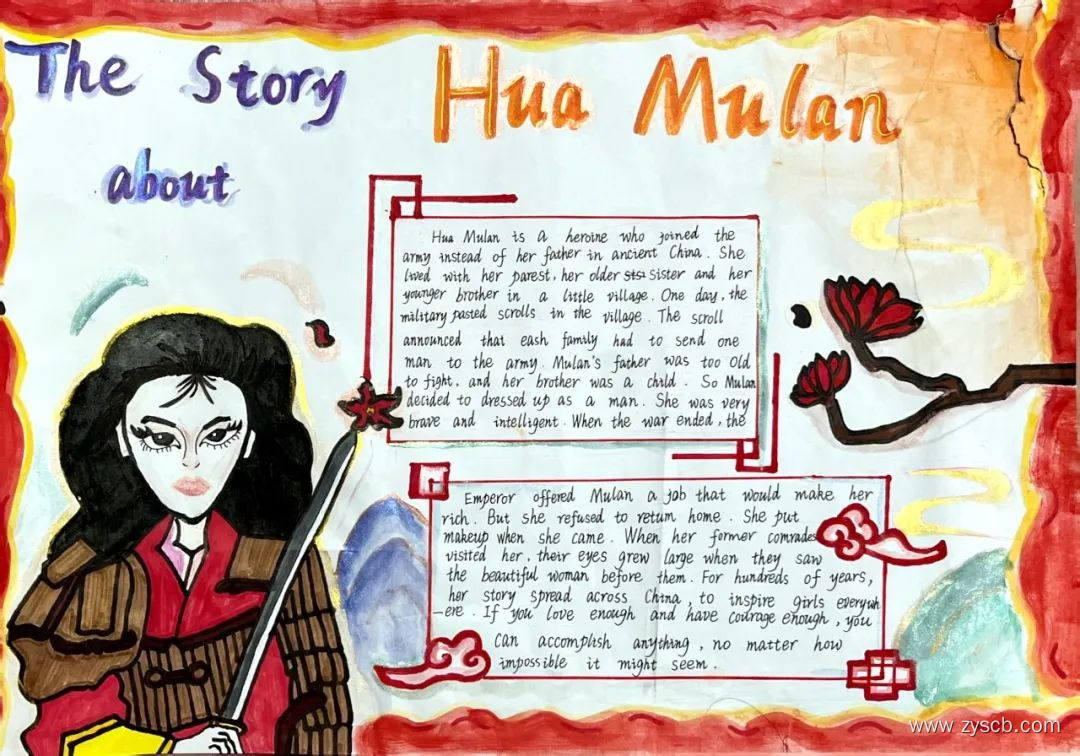 The Story
about
Hua Mulan
Hua Mulan is a heroine who joined the
army instead of her father in ancient China. She
lived with her parest, her older sister and her
younger brother in a little village. One day, the
military pasted scrolls in the village. The scroll
announced that eash family had to send one
man to the army. Mulan's father was too old
to fight, and her brother was a child. So Mulan
decided to dressed up as a man. She was very
brave and intelligent. When the war ended, the
Emperor offered Mulan a job that would make her
rich. But she refused to return home. She put
makeup when she came. When her former comrades
visited her, their eyes grew large when they saw
the beautiful woman before them. For hundreds of years,
her story spread across China, to inspire girls everywh
-ere. If you love enough and have courage enough, you
can accomplish anything, no matter how
impossible it might seem.
www.zyscb.com